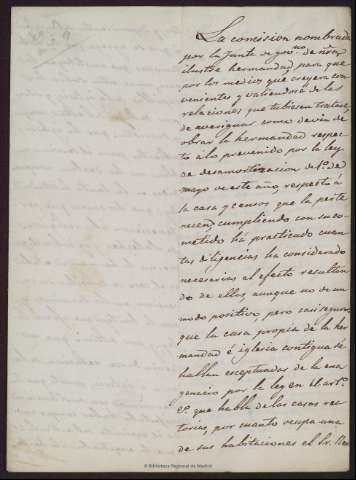 La comision nombrada
por la Junta de gov.no de ntra
ilustre hermandad para que
por los medios que creyera con
venientes y valiendose de las
relaciones que tubiese tratase
de averiguar como devia de
obrar la hermandad respec
to a lo prevenido por la ley
de desamortizacion de 1.o de
mayo de este año respecto á
la casa y censos que la perte
necen, cumpliendo con su co
metido há practicado cuan
tas diligencias ha considerado
necesarias al efecto resultan
do de ellas, aunque no de un
modo positivo, pero casi seguro
que la casa propia de la her
mandad é iglesia contigua se
hallan exceptuadas de la ena
genacion por la ley en el art.o
2.o que habla de las casas rec
torias, por cuanto ocupa una
de sus habitaciones el Sr.
© Biblioteca Regional de Madrid